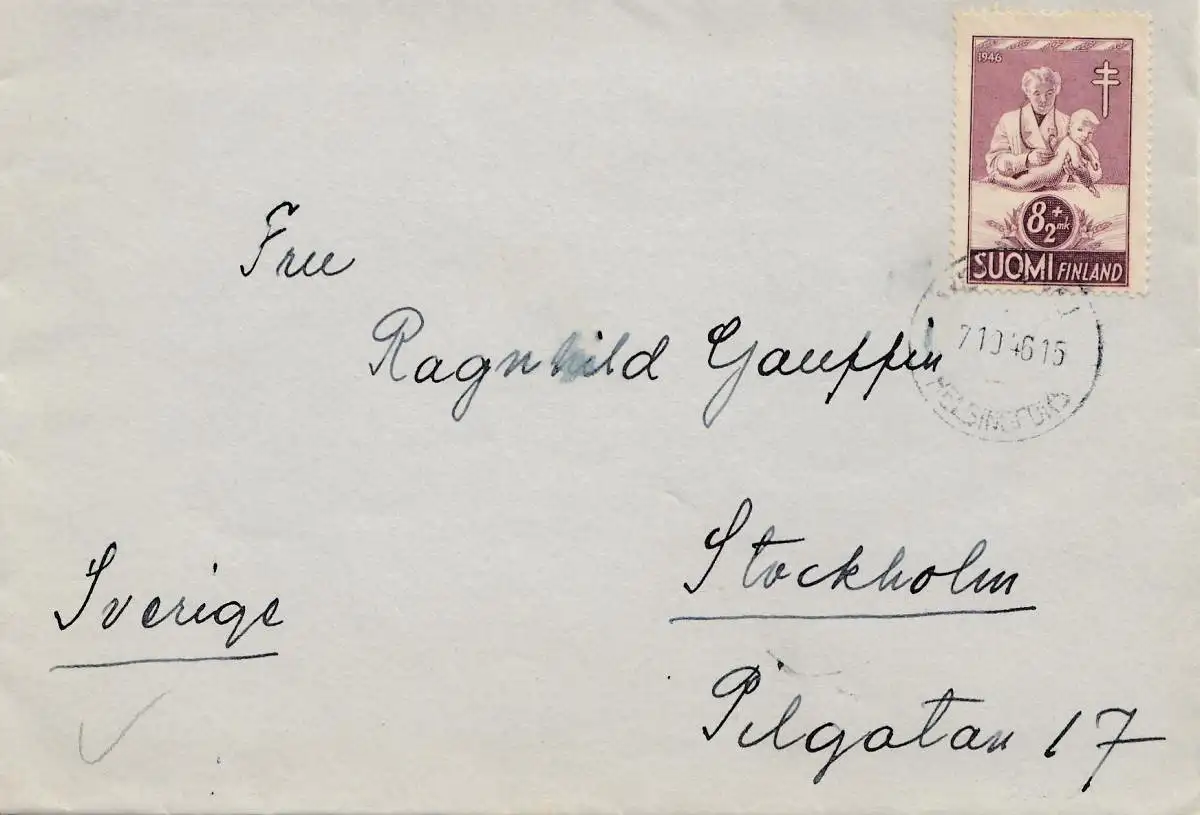 1946
8+2 mk
SUOMI FINLAND
7.10.46 15
HELSINGFORS
Fru
Ragnhild Gauffin
Stockholm
Sverige
Pilgatan 17